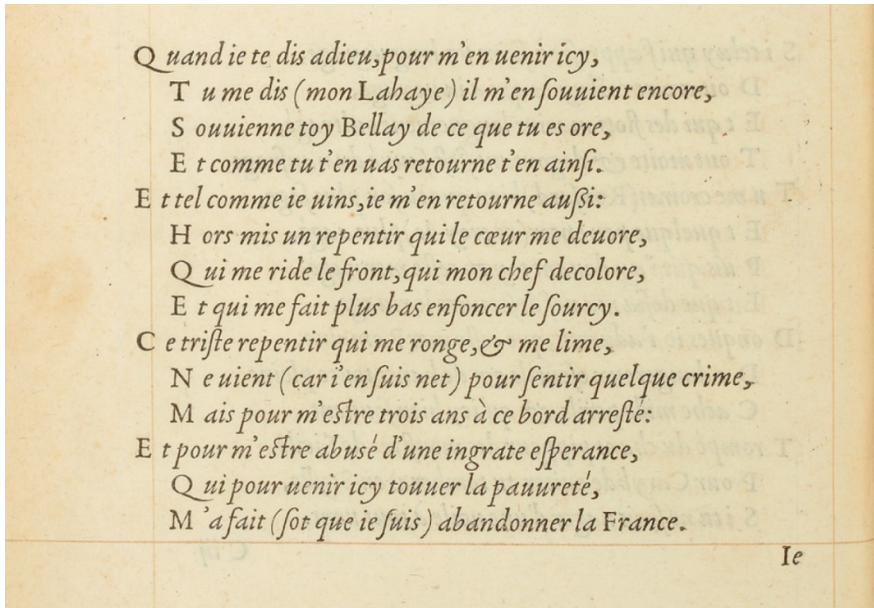 Quand ie te dis adieu, pour m'en uenir icy,
Tu me dis (mon Lahaye) il m'en souuient encore,
Souuienne toy Bellay de ce que tu es ore,
Et comme tu t'en uas retourne t'en ainsi.
Et tel comme ie uins, ie m'en retourne aussi:
Hors mis un repentir qui le cœur me deuore,
Qui me ride le front, qui mon chef decolore,
Et qui me fait plus bas enfoncer le sourcy.
Ce triste repentir qui me ronge, & me lime,
Ne uient (car i'en suis net) pour sentir quelque crime,
Mais pour m'estre trois ans à ce bord arresté:
Et pour m'estre abusé d'une ingrate esperance,
Qui pour uenir icy touuer la pauureté,
M'a fait (sot que ie suis) abandonner la France.
Ie